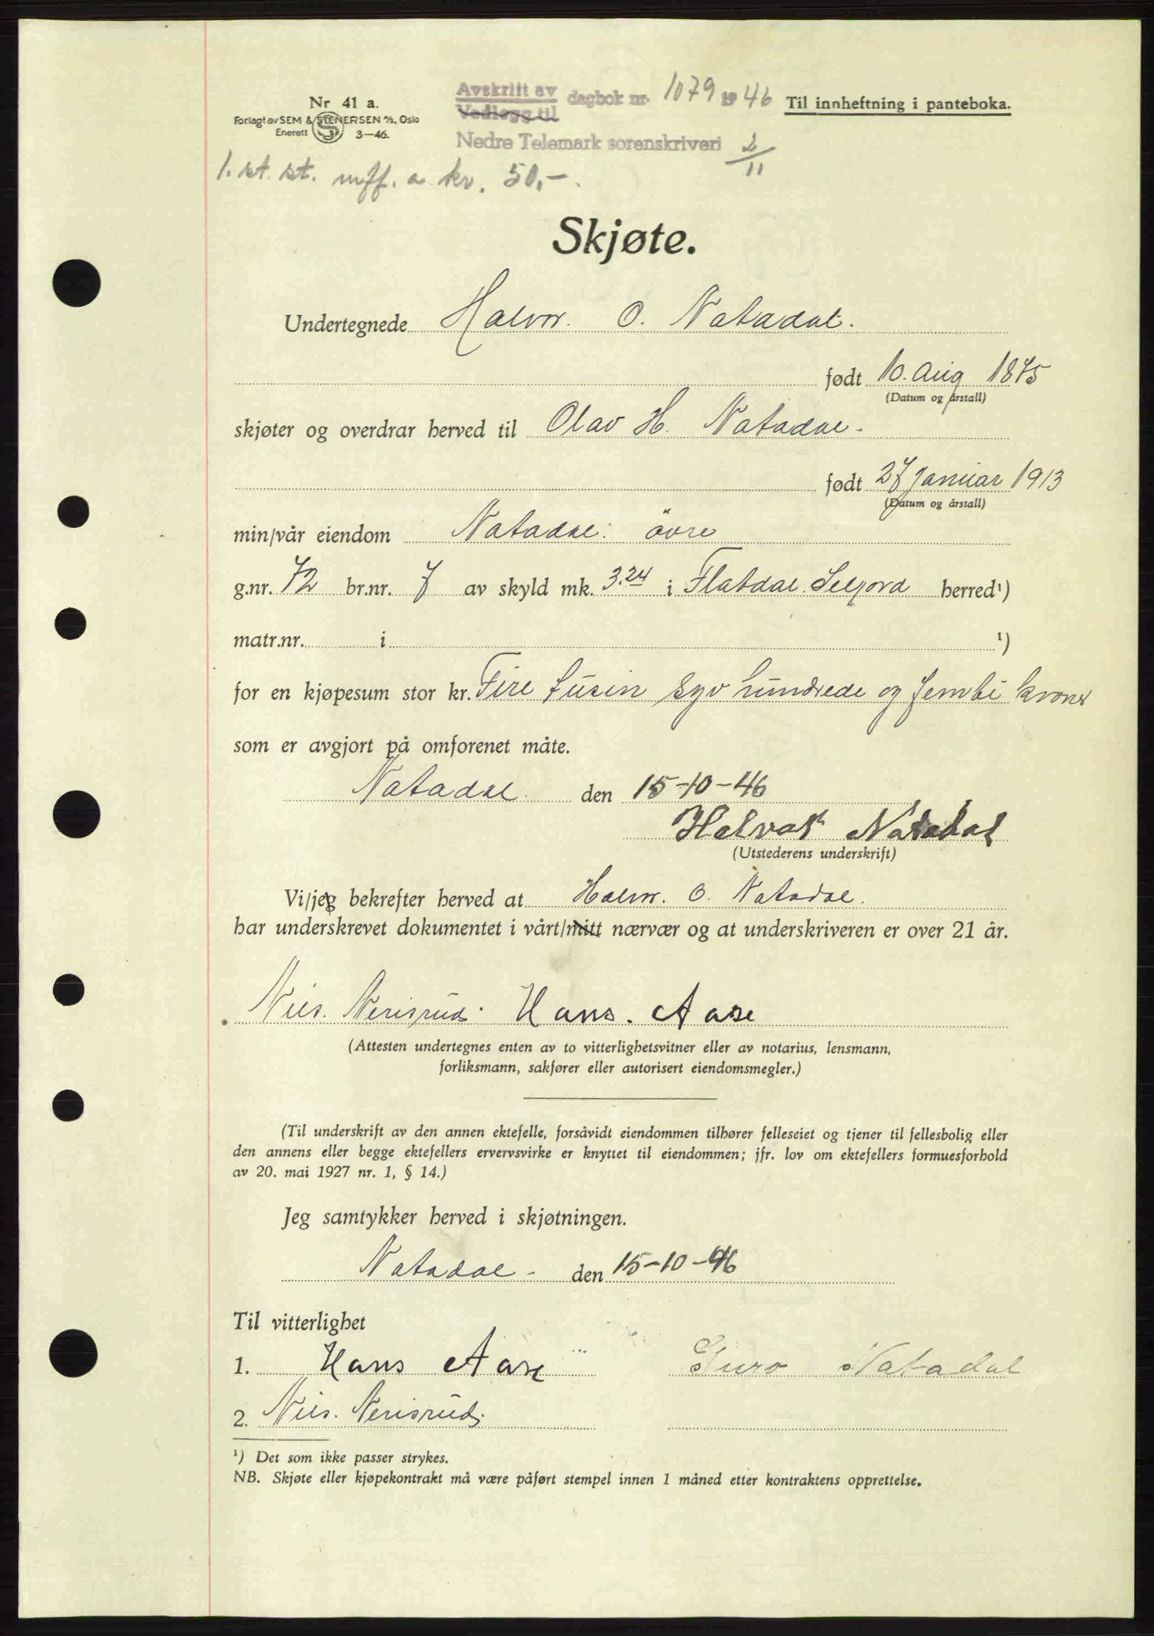 Nr 41 a.
Forlagt av SEM & STENERSEN A/S, Oslo
Enerett 3—46.
Avskrift av
Vedlegg til
dagbok nr. 1079 1946
Nedre Telemark sorenskriveri 2/11
Til innheftning i panteboka.
1. st. st. mff. a kr. 50,-.
Skjøte.
Undertegnede Halvor O. Natadal.
født 10. Aug 1875
(Datum og årstall)
skjøter og overdrar herved til Olav H. Natadal.
født 27 Januar 1913
(Datum og årstall)
min/vår eiendom Natadal: övre
g.nr. 72 br.nr. 7 av skyld mk. 3.24 i Flatdal. Seljord herred¹)
matr.nr. i ¹)
for en kjøpesum stor kr. Fire tusin syv hundrede og femti kroner
som er avgjort på omforenet måte.
Natadal den 15-10-46
Halvor Natadal
(Utstederens underskrift)
Vi/jeg bekrefter herved at Halvor. O. Natadal.
har underskrevet dokumentet i vårt/mitt nærvær og at underskriveren er over 21 år.
Nils. Nerisrud. Hans. Aase
(Attesten undertegnes enten av to vitterlighetsvitner eller av notarius, lensmann,
forliksmann, sakfører eller autorisert eiendomsmegler.)
(Til underskrift av den annen ektefelle, forsåvidt eiendommen tilhører felleseiet og tjener til fellesbolig eller
den annens eller begge ektefellers ervervsvirke er knyttet til eiendommen; jfr. lov om ektefellers formuesforhold
av 20. mai 1927 nr. 1, § 14.)
Jeg samtykker herved i skjøtningen.
Natadal - den 15-10-46
Til vitterlighet
1. Hans Aase Guro Natadal
2. Nils. Nerisrud.
¹) Det som ikke passer strykes.
NB. Skjøte eller kjøpekontrakt må være påført stempel innen 1 måned etter kontraktens opprettelse.